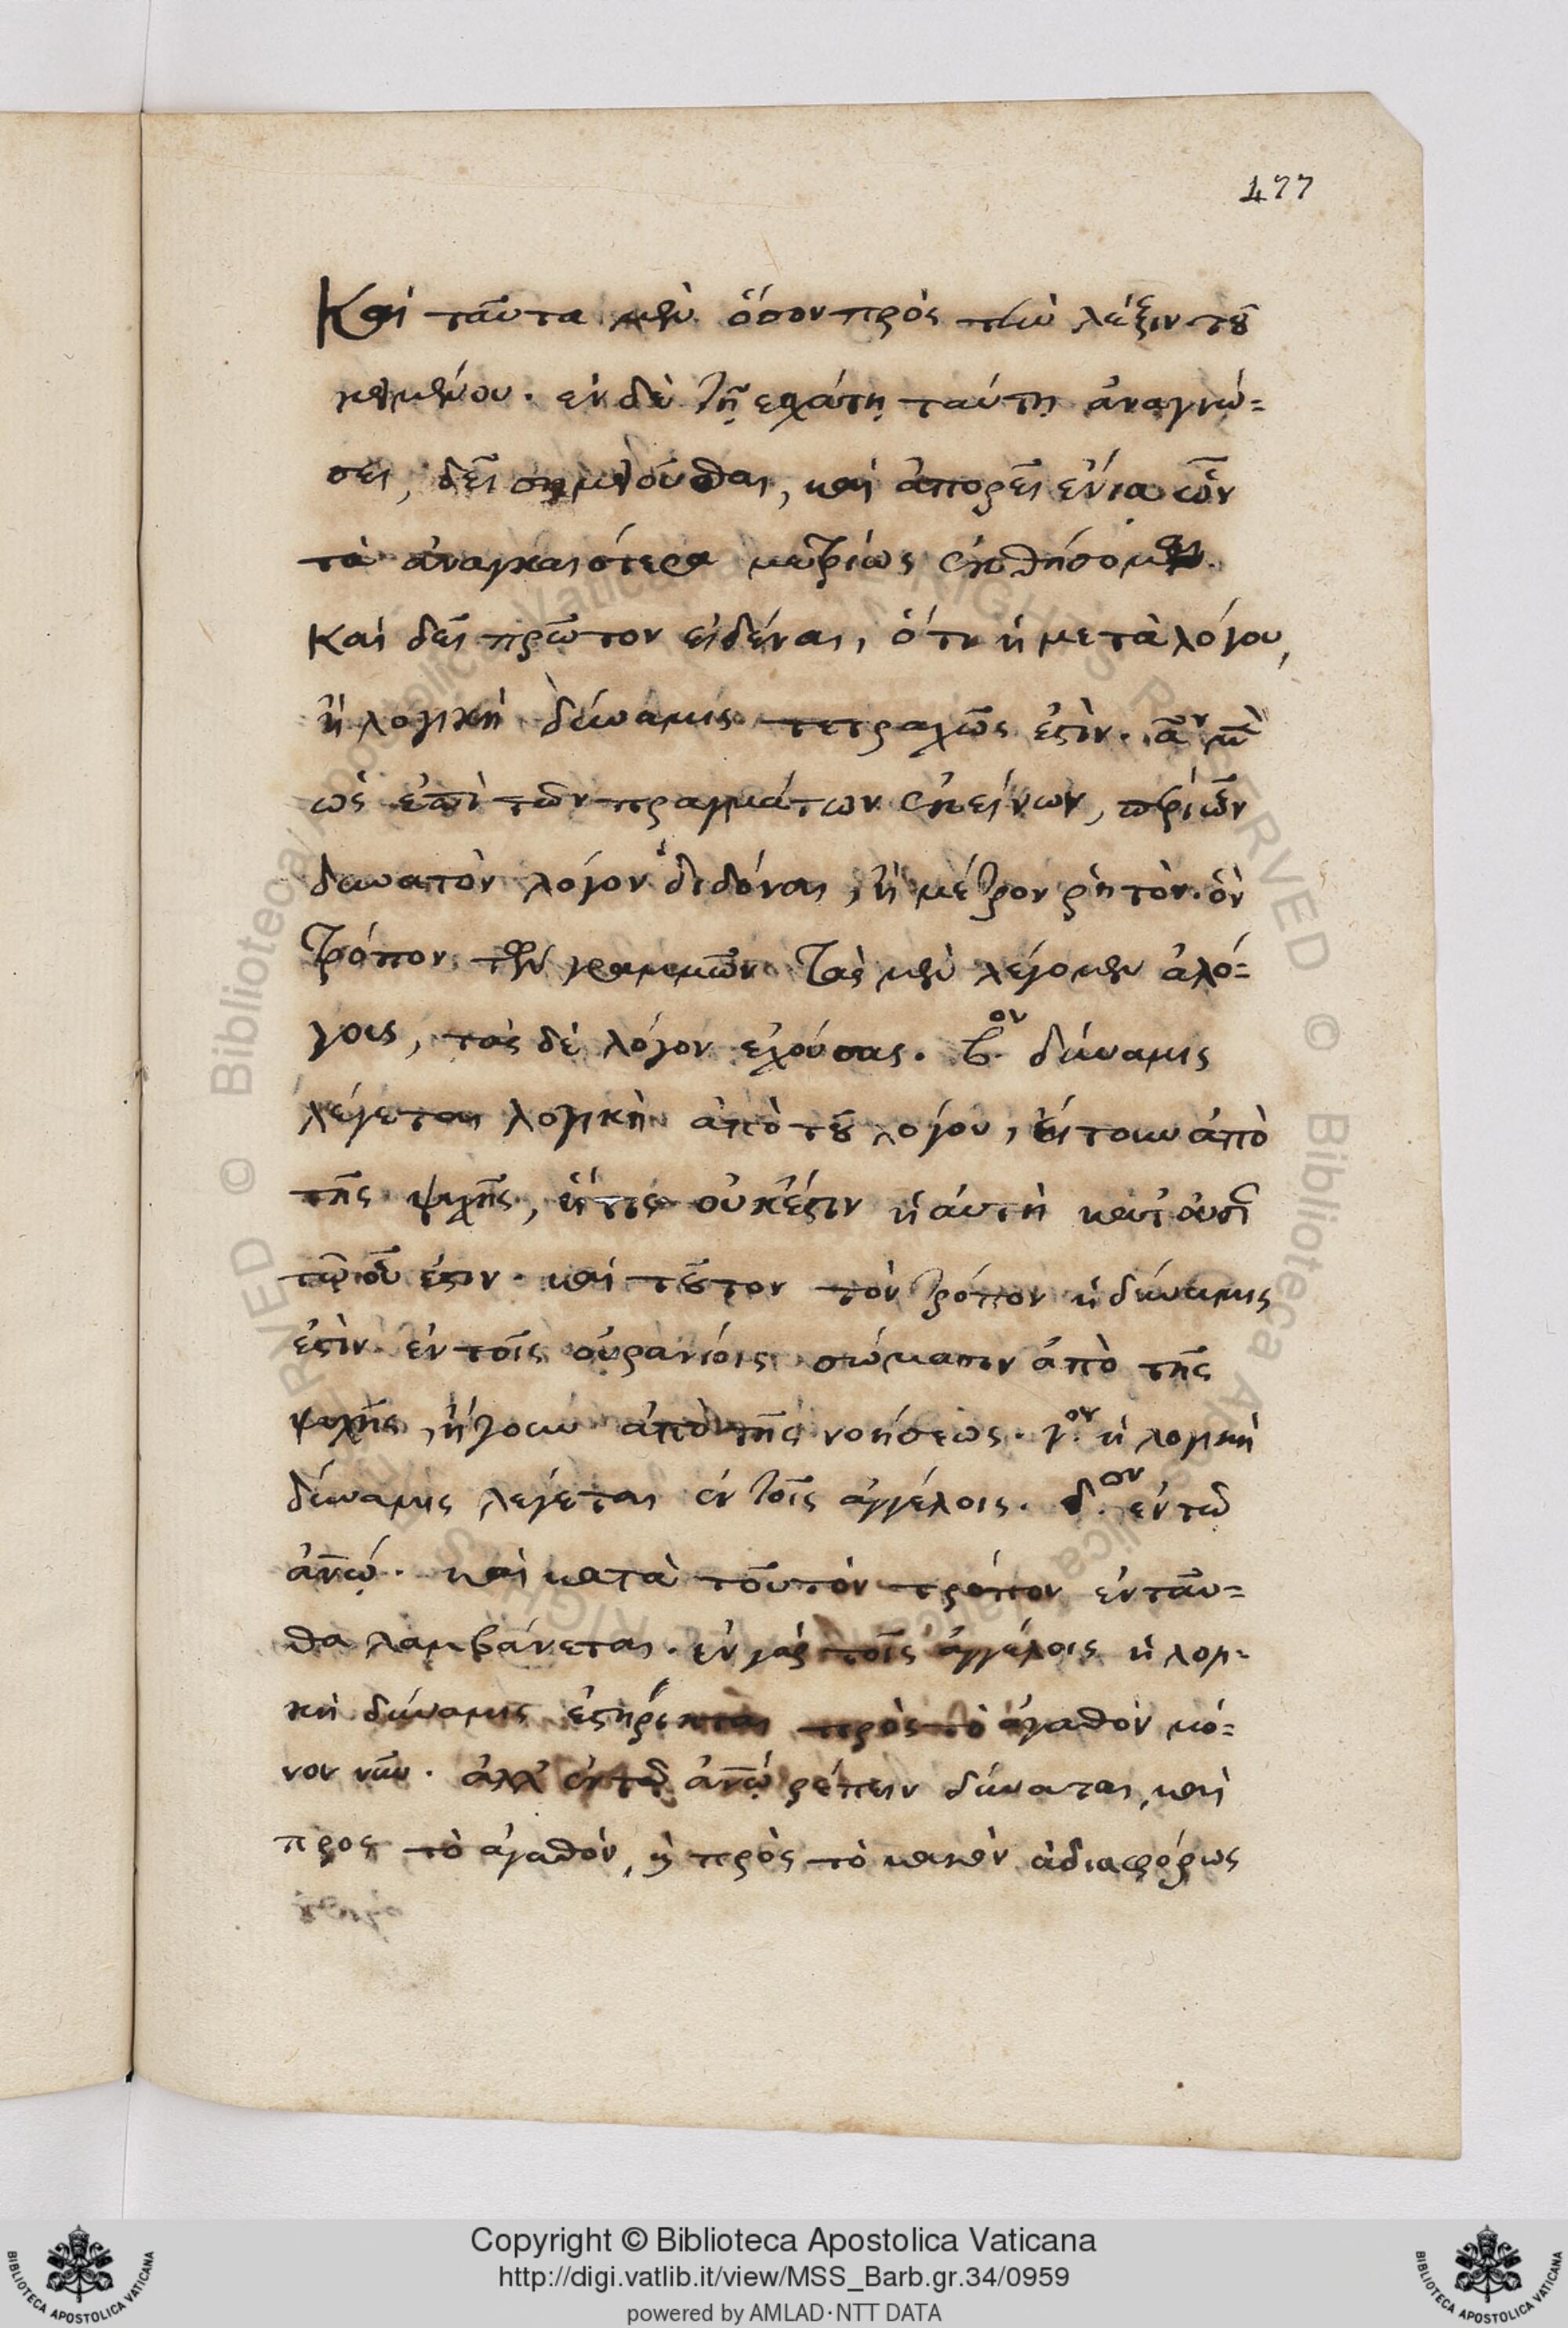 477
Καὶ ταῦτα μὲν ὅσον πρὸς τὴν λέξιν τοῦ
κειμένου. ἐν δὲ τῇ ἐσχάτῃ ταύτῃ ἀναγνώ=
σει, δεῖ σημειοῦσθαι, καὶ ἀπορεῖ ἔνια ὧν
τὰ ἀναγκαιότερα μετρίως ἐκθήσομεν.
Καὶ δεῖ πρῶτον εἰδέναι, ὅτι ἡ μετὰ λόγου,
ἢ λογικὴ δύναμις τετραχῶς ἐστὶν. αον μὲν
ὡς ἐπὶ τῶν πραγμάτων ἐκείνων, περὶ ὧν
δυνατὸν λόγον διδόναι, ἢ μέτρον ῥητὸν. ὃν
τρόπον τῶν γραμμῶν τὰς μὲν λέγομεν ἀλό=
γους, τὰς δὲ λόγον ἐχούσας. β.ον δύναμις
λέγεται λογικὴ ἀπὸ τοῦ λόγου, εἴτουν ἀπὸ
τῆς ψυχῆς, ἥτις οὐκ ἔστιν ἡ αὐτὴ
ἐστιν. καὶ τοῦτον τὸν τρόπον ἡ δύναμις
ἐστὶν ἐν τοῖς οὐρανίοις σώμασιν ἀπὸ τῆς
ψυχῆς, ἤγουν ἀπὸ τῆς νοήσεως. γ.ον ἡ λογικὴ
δύναμις λέγεται ἐν τοῖς ἀγγέλοις. δ.ον ἐν τῷ
ἀνῷ. καὶ κατὰ τοῦτον τρόπον ἐνταῦ=
θα λαμβάνεται. ἐν γὰρ τοῖς ἀγγέλοις ἡ λογι=
κὴ δύναμις ἐστήρικται πρὸς τὸ ἀγαθὸν μό=
νον νῦν. ἀλλ' ἐν τῷ ἀνῷ ῥέπειν δύναται, καὶ
πρὸς τὸ ἀγαθὸν, καὶ πρὸς τὸ κακὸν ἀδιαφόρως
© Biblioteca Apostolica Vaticana
Copyright © Biblioteca Apostolica Vaticana
http://digi.vatlib.it/view/MSS_Barb.gr.34/0959
powered by AMLAD·NTT DATA
BIBLIOTECA APOSTOLICA VATICANA
BIBLIOTECA APOSTOLICA VATICANA